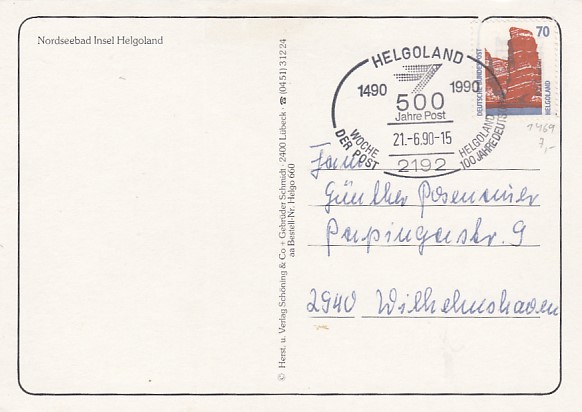 Nordseebad Insel Helgoland
© Herst. u. Verlag Schöning & Co + Gebrüder Schmidt · 2400 Lübeck · ☎ (04 51) 3 12 24
aa Bestell-Nr. Helgo 660
HELGOLAND
1490 1990
500
Jahre Post
21.-6.90-15
WOCHE
DER POST
HELGOLAND
100 JAHRE DEUTSCH
2192
70
DEUTSCHE BUNDESPOST
HELGOLAND
1469
7,-
Günther Posenauer
Papingastr. 9
2940 Wilhelmshaven